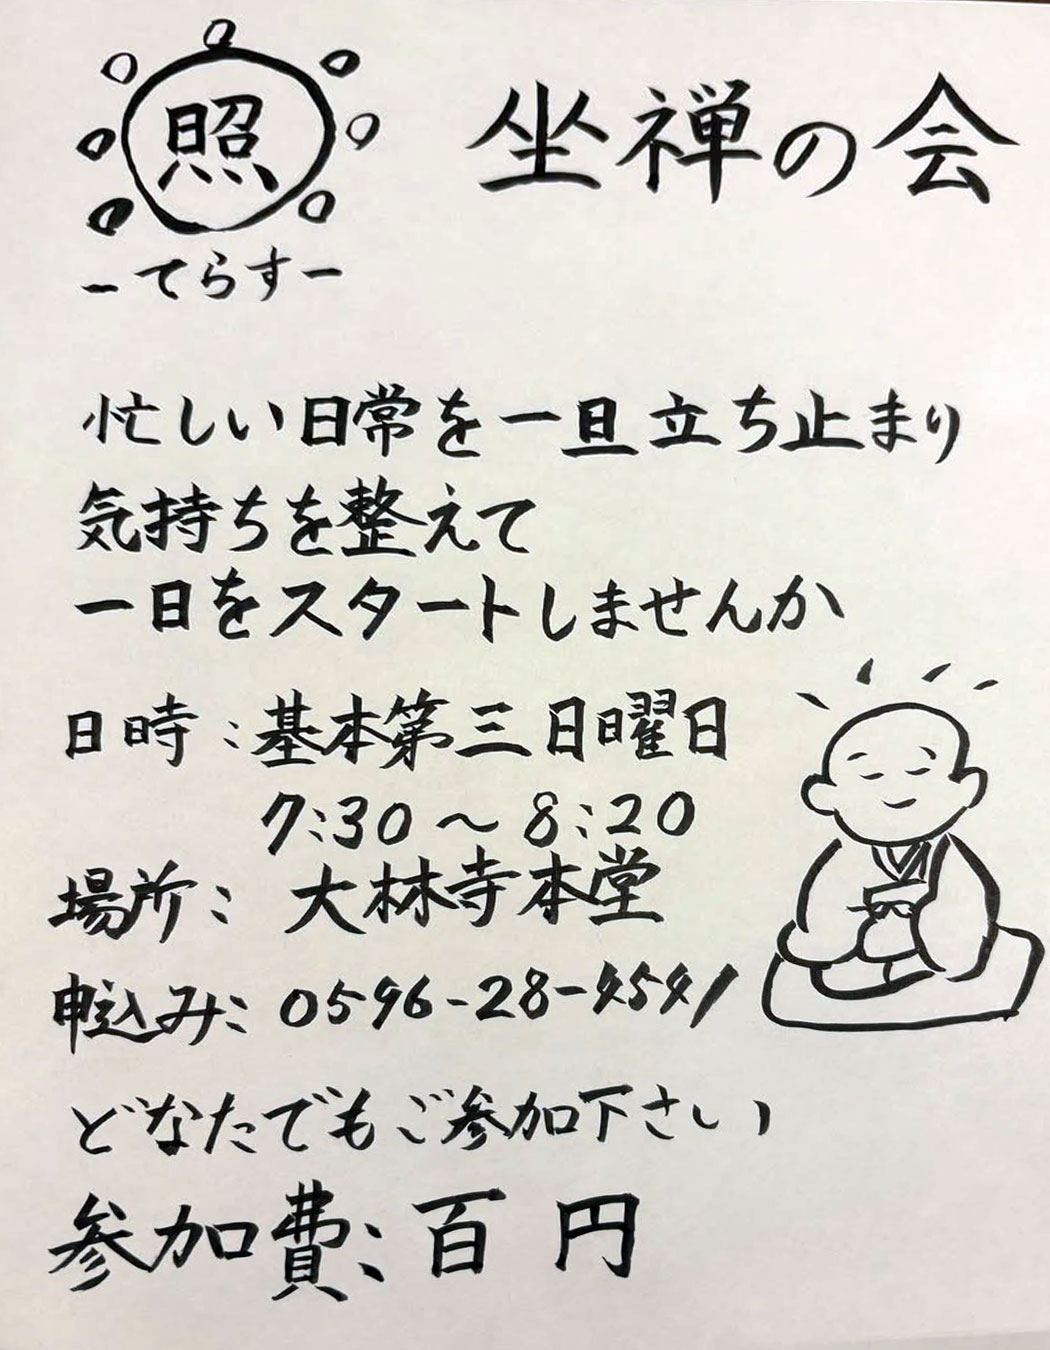 照
坐禅の会
ーてらすー
忙しい日常を一旦立ち止まり
気持ちを整えて
一日をスタートしませんか
日時：基本第三日曜日
7:30～8:20
場所：大林寺本堂
申込み：0596-28-4541
どなたでもご参加下さい
参加費：百円